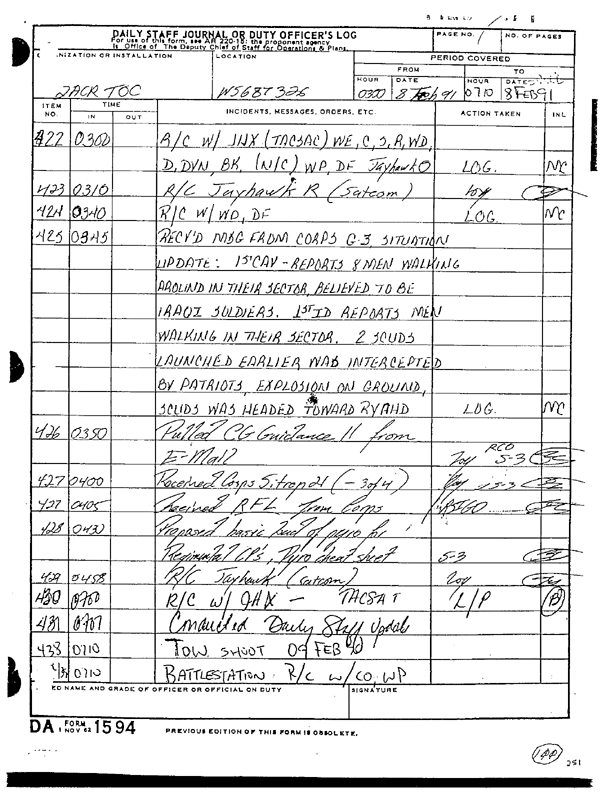 DAILY STAFF JOURNAL OR DUTY OFFICER'S LOG
For use of this form, see AR 220-15; the proponent agency
is Office of The Deputy Chief of Staff for Operations & Plans.
PAGE NO. 1 NO. OF PAGES
NIZATION OR INSTALLATION LOCATION PERIOD COVERED
FROM TO
HOUR DATE HOUR DATE
2ACR TOC 0300 8 Feb 91 0710 8 FEB 91
ITEM NO. TIME INCIDENTS, MESSAGES, ORDERS, ETC. ACTION TAKEN INL
IN OUT
422 0300 R/C W/ JNX (TACSAC) WE, C, S, R, WD,
D, DVN, BK, (N/C) WP, DF Jayhawk O LOG. MC
423 0310 R/C Jayhawk R (Satcom) Log
424 0340 R/C W/ WD, DF LOG MC
425 0345 RECV'D MSG FROM CORPS G-3 SITUATION
UPDATE: 1ST CAV - REPORTS 8 MEN WALKING
AROUND IN THEIR SECTOR, BELIEVED TO BE
IRAQI SOLDIERS. 1ST ID REPORTS MEN
WALKING IN THEIR SECTOR. 2 SCUDS
LAUNCHED EARLIER WAS INTERCEPTED
BY PATRIOTS, EXPLOSION ON GROUND,
SCUDS WAS HEADED TOWARD RYAHD LOG. MC
426 0350 Pulled CG Guidance 11 from
E-Mail Log RCO S-3
427 0400 Received Corps Sitrep 21 (-3 of 4) Log S-3
427 0405 Received RFL from Corps
428 0430 Proposed basic load of pyro for
Regimental CP's, Pyro cheat sheet S-3
429 0458 R/C Jayhawk (satcom) Log
430 0700 R/C W/ JHX - TACSAT L/P B
431 0707 Conducted Daily Staff Update
438 0710 TOW SHOOT 09 FEB
0710 BATTLESTATION R/C W/ CO, WP
ED NAME AND GRADE OF OFFICER OR OFFICIAL ON DUTY SIGNATURE
DA FORM 1 NOV 62 1594 PREVIOUS EDITION OF THIS FORM IS OBSOLETE.
251